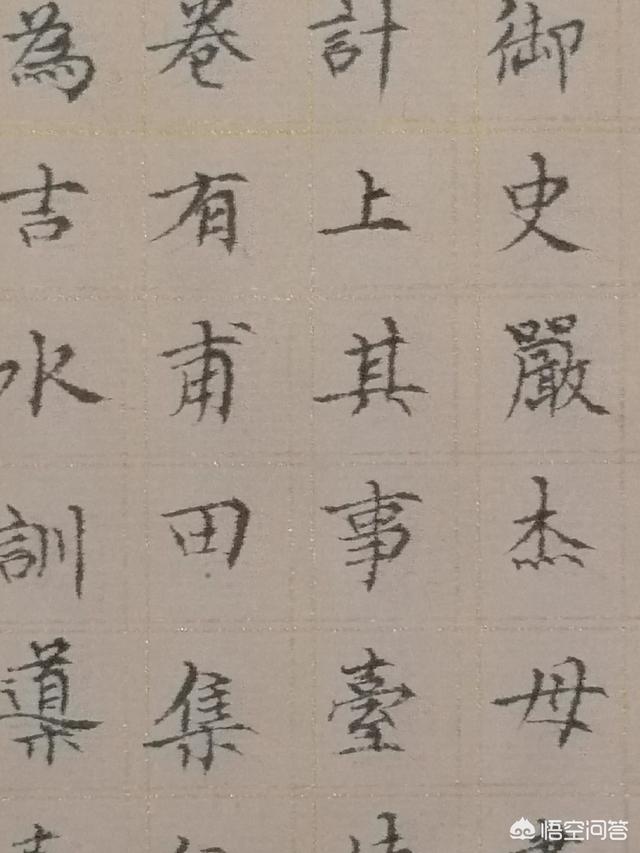 御史嚴杰母
計上其事臺
卷有甫田集
為吉水訓導
悟空问答